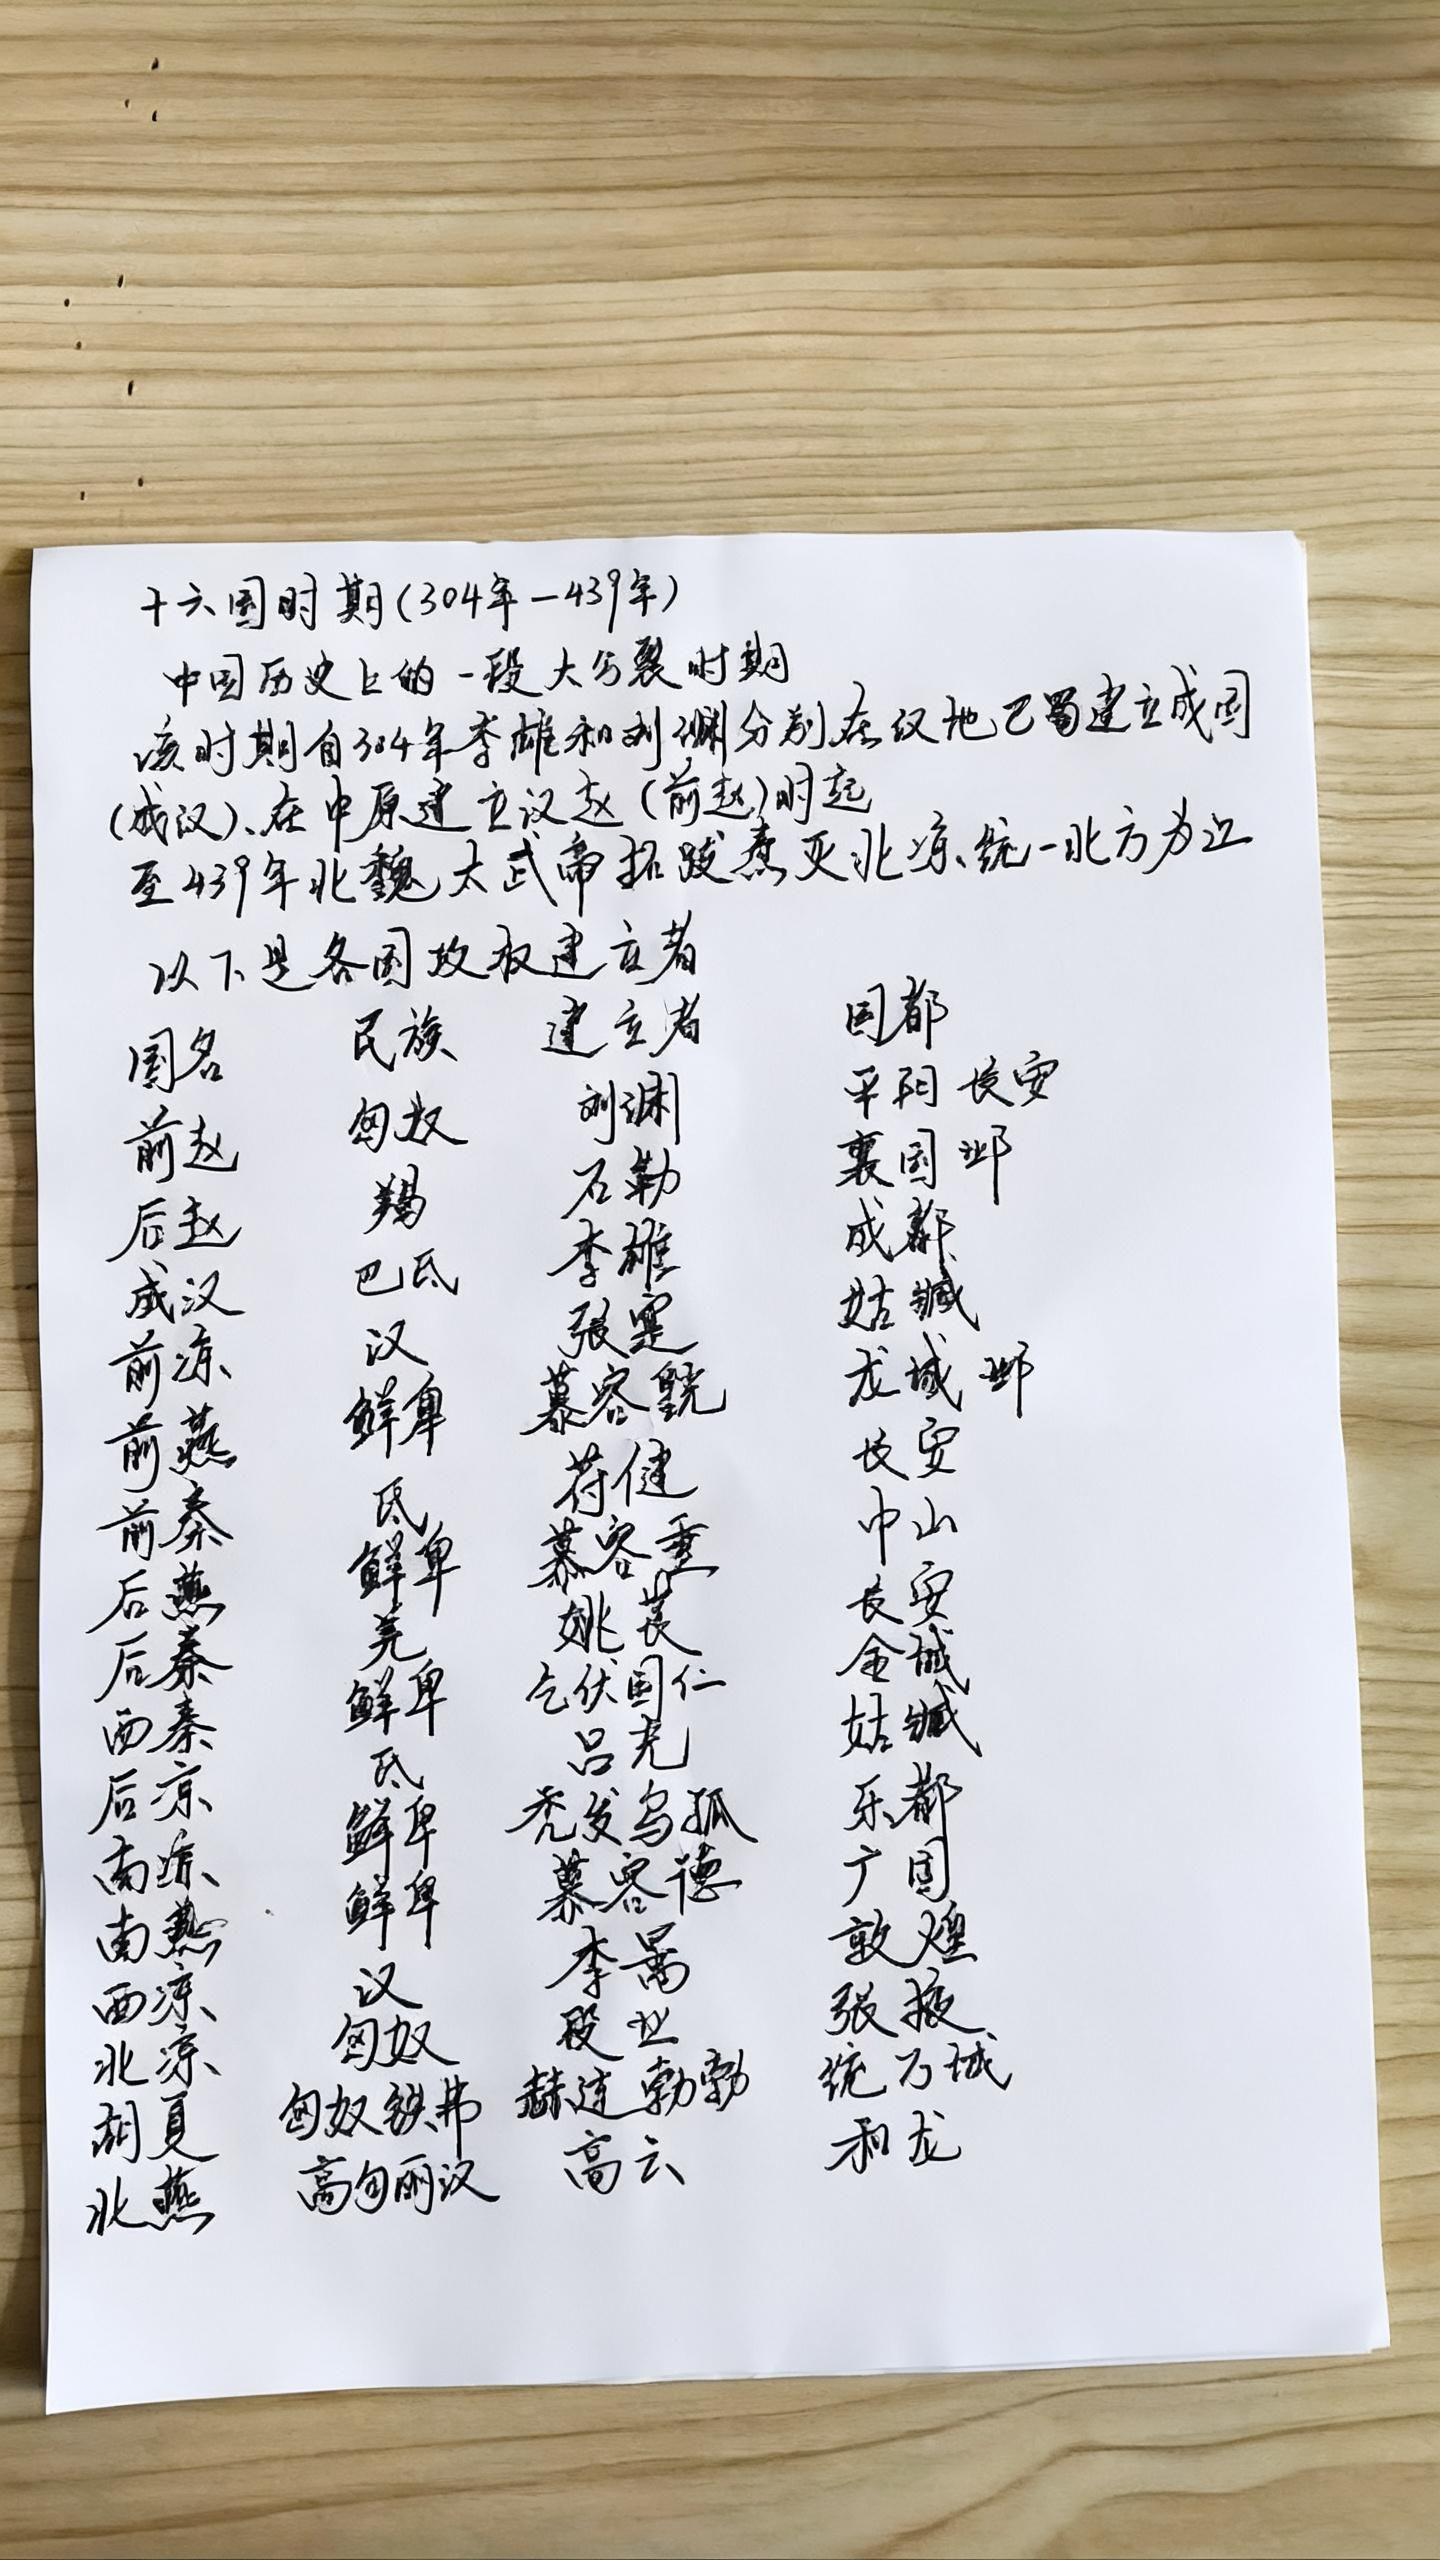 十六国时期(304年—439年)
中国历史上的一段大分裂时期
该时期自304年李雄和刘渊分别在仅地巴蜀建立成国
(成汉)、在中原建立汉赵(前赵)时起
至439年北魏太武帝拓跋焘灭北凉、统一北方为止
以下是各国政权建立者
国名 民族 建立者 国都
前赵 匈奴 刘渊 平阳 长安
后赵 羯 石勒 襄国 邺
成汉 巴氐 李雄 成都
前凉 汉 张寔 姑臧
前燕 鲜卑 慕容皝 龙城 邺
前秦 氐 苻健 长安
后燕 鲜卑 慕容垂 中山
后秦 羌 姚苌 长安
西秦 鲜卑 乞伏国仁 金城
后凉 氐 吕光 姑臧
南凉 鲜卑 秃发乌孤 乐都
南燕 鲜卑 慕容德 广固
西凉 汉 李暠 敦煌
北凉 匈奴 段业 张掖
胡夏 匈奴铁弗 赫连勃勃 统万城
北燕 高句丽汉 高云 和龙